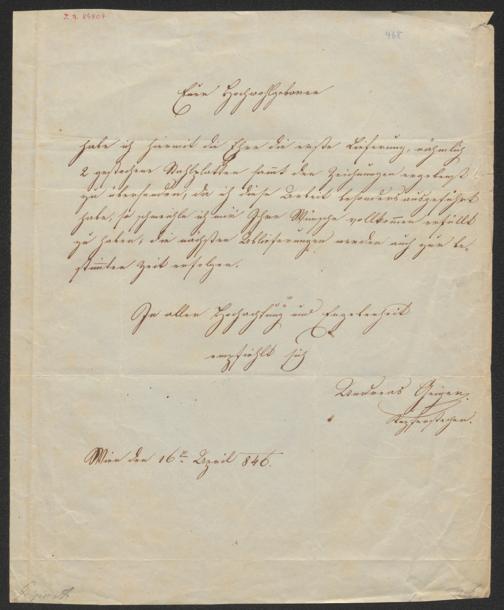 Z. N. 85807
468
Euer Hochwohlgeboren
habe ich hiermit die Ehre die erste Lieferung, nähmlich
2 gestochene Stahlplatten sammt den Zeichnungen ergebenst
zu übersenden, da ich diese Arbeit besonders ausgeführt
habe, so schmeichle ich mir Ihre Wünsche vollkommen erfüllt
zu haben, die nächsten Ablieferungen werden auch zur be-
stimmten Zeit erfolgen.
In aller Hochachtung und Ergebenheit
empfiehlt sich
Andreas Geiger.
Kupferstecher.
Wien den 16n. April 846.